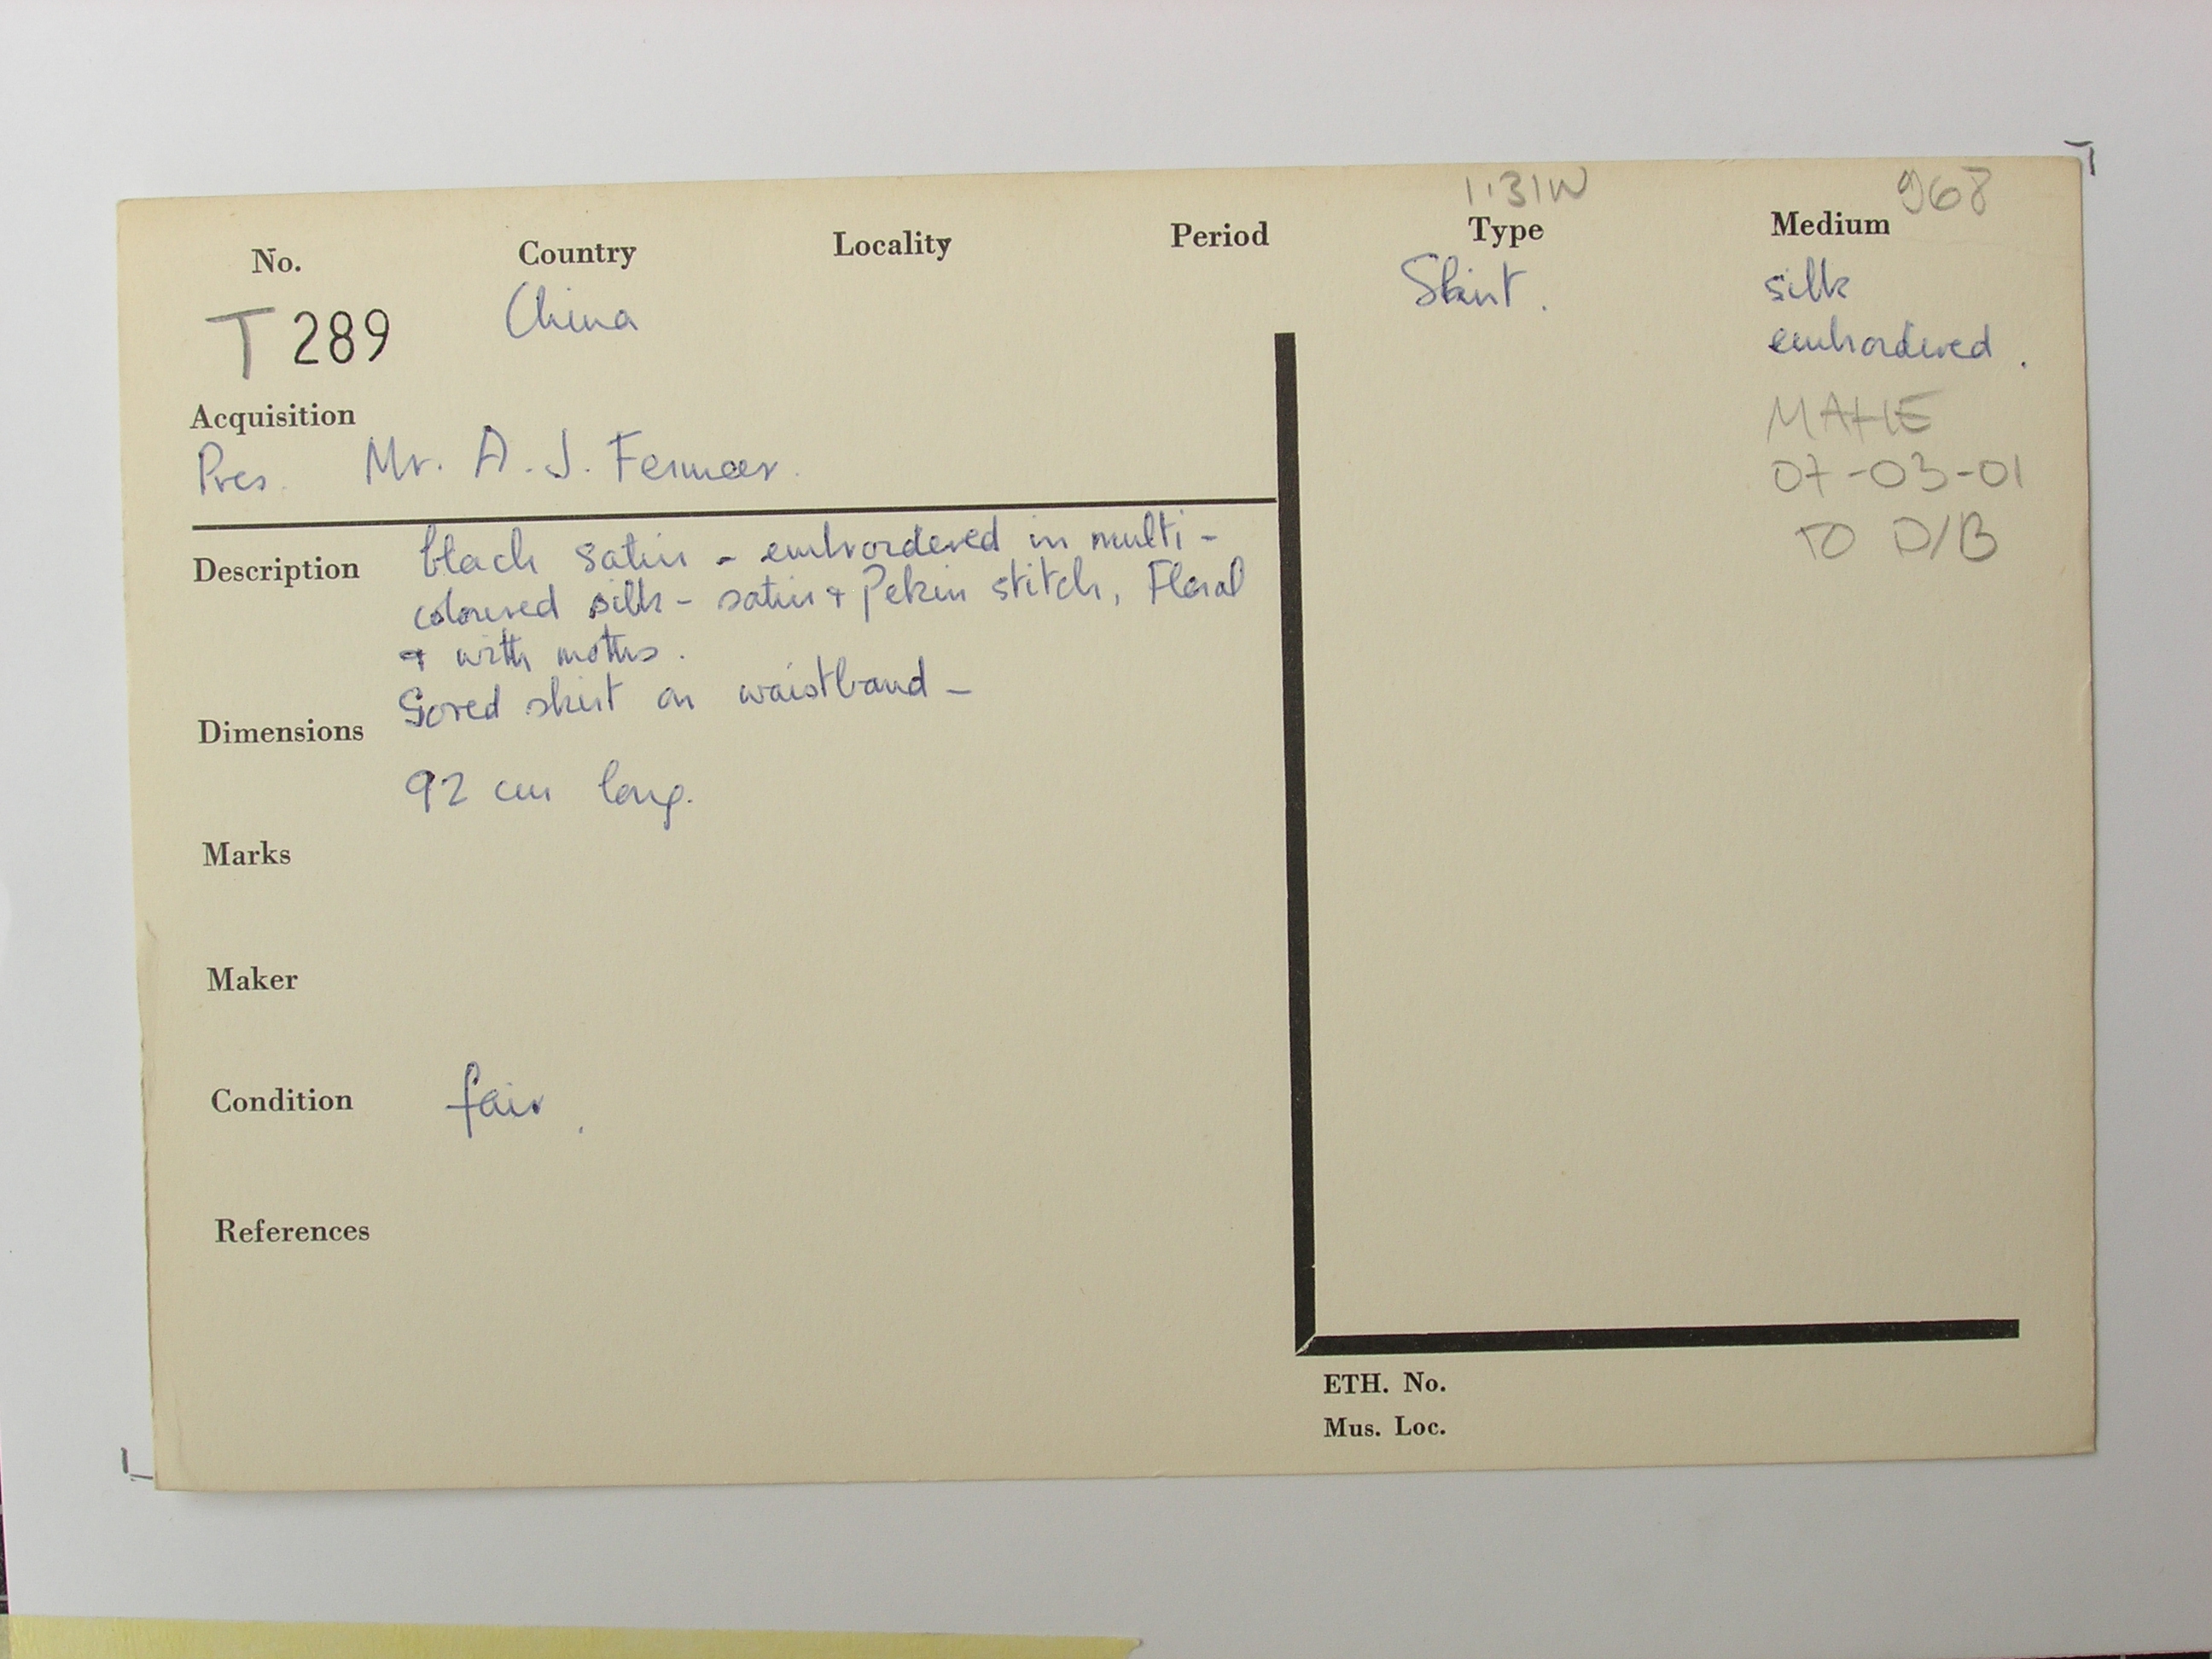 1.31W
968
No. Country Locality Period Type Medium
T 289 China Skirt. silk
embrordered.
MAHE
07-03-01
TO D/B
Acquisition
Pres. Mr. A. J.
Description black satin - embrordered in multi-
coloured silk - satin & Pekin stitch, Floral
& with moths.
Gored skirt on waistband -
Dimensions
92 cm long.
Marks
Maker
Condition fair.
References
ETH. No.
Mus. Loc.